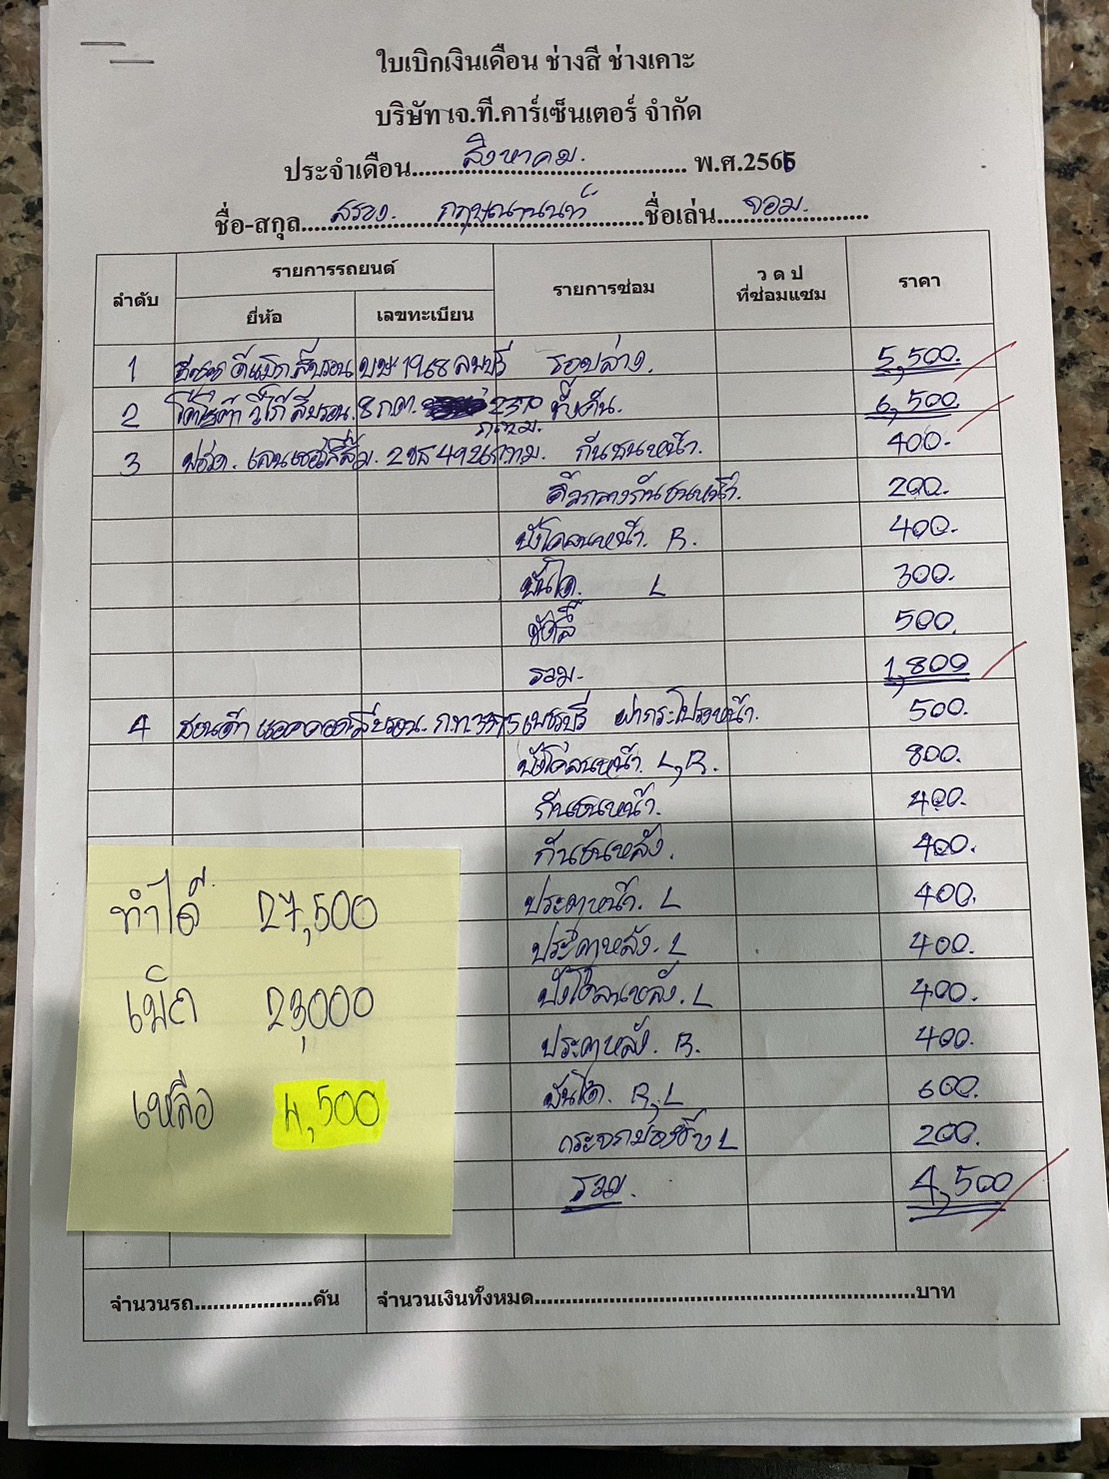 ใบเบิกเงินเดือน ช่างสี ช่างเคาะ
บริษัท เจ.ที.คาร์เซ็นเตอร์ จำกัด
ประจำเดือน......สิงหาคม......พ.ศ.2566
ชื่อ-สกุล...... กฤษณานนท์......ชื่อเล่น...จอม.......
ลำดับ รายการรถยนต์ รายการซ่อม ว ด ป ที่ซ่อมแซม ราคา
ยี่ห้อ เลขทะเบียน
1 อีซูซุ ดีแม็ก สีบรอน บษ 1968 ลพบุรี รอบล่าง. 5,500.
2 โตโยต้า วีโก้ สีบรอน. 8กด. 2370 กทม. ทั้งคัน. 6,500.
3 ฟอร์ด. เลนเซอร์สีส้ม. 2ขส 4921 กทม. กันชนหน้า. 400.
คิ้วกลางกันชนหน้า. 200.
บังโคลนหน้า. R. 400.
บันได. L 300.
ขัดสี 500.
รวม. 1,800
4 ฮอนด้า แอคคอด สีบรอน. เพชรบุรี ฝากระโปรงหน้า. 500.
บังโคลนหน้า. L,R. 800.
กันชนหน้า. 400.
กันชนหลัง. 400.
ประตูหน้า. L 400.
ประตูหลัง. L 400.
บังโคลนหลัง. L 400.
ประตูหลัง. R. 400.
บันได. R,L 600.
กระจกมองข้าง L 200.
รวม. 4,500
ทำได้ 27,500
เบิก 23,000
เหลือ 4,500
จำนวนรถ...................คัน จำนวนเงินทั้งหมด............................................................บาท